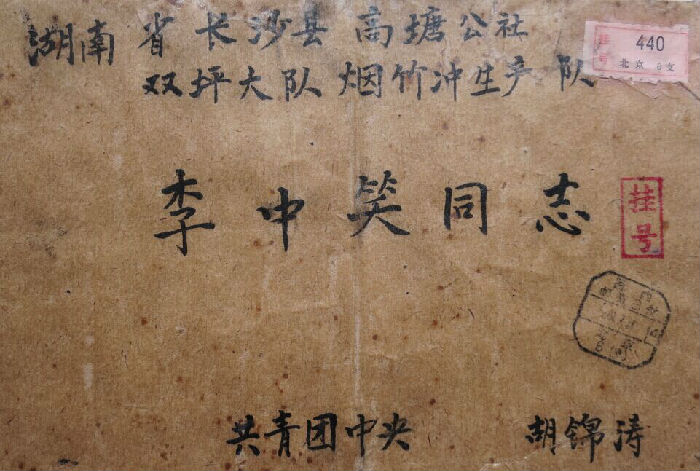 湖南省长沙县高塘公社
双坪大队烟竹冲生产队
挂号
440
北京 6支
李中笑同志
挂号
共青团中央 胡锦涛